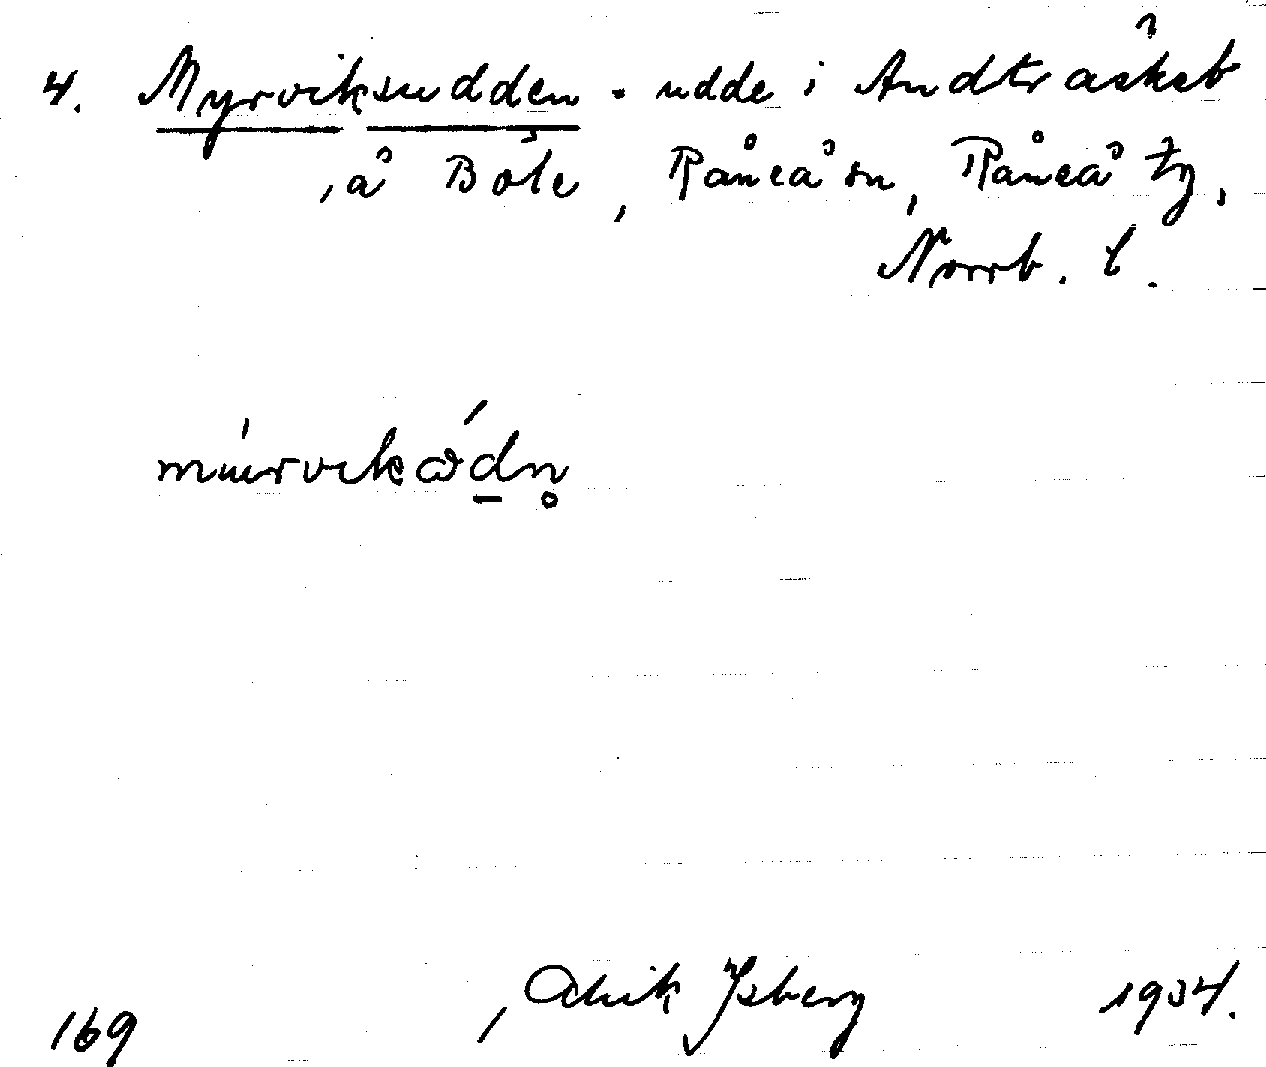 4. Myrviksudden - udde i Andträsket
, å Böle, Råneå sn, Råneå tg,
Norrb. l.
múrvikɷ́dn̥
169 Alrik Isberg 1934.